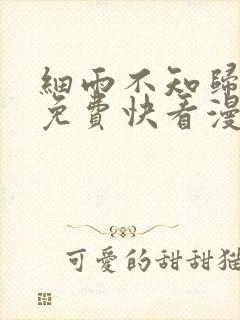 細雨不知歸
免費快看漫
可愛的甜甜貓